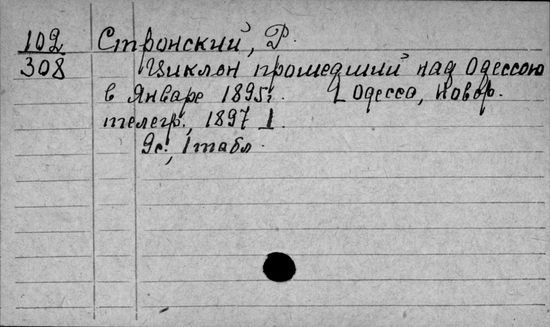 102 Стронский, Р.
308 Циклон прошедший над Одессою
в Январе 1895г. [Одесса, Новор.
телегр., 1897]
9с., 1 табл.